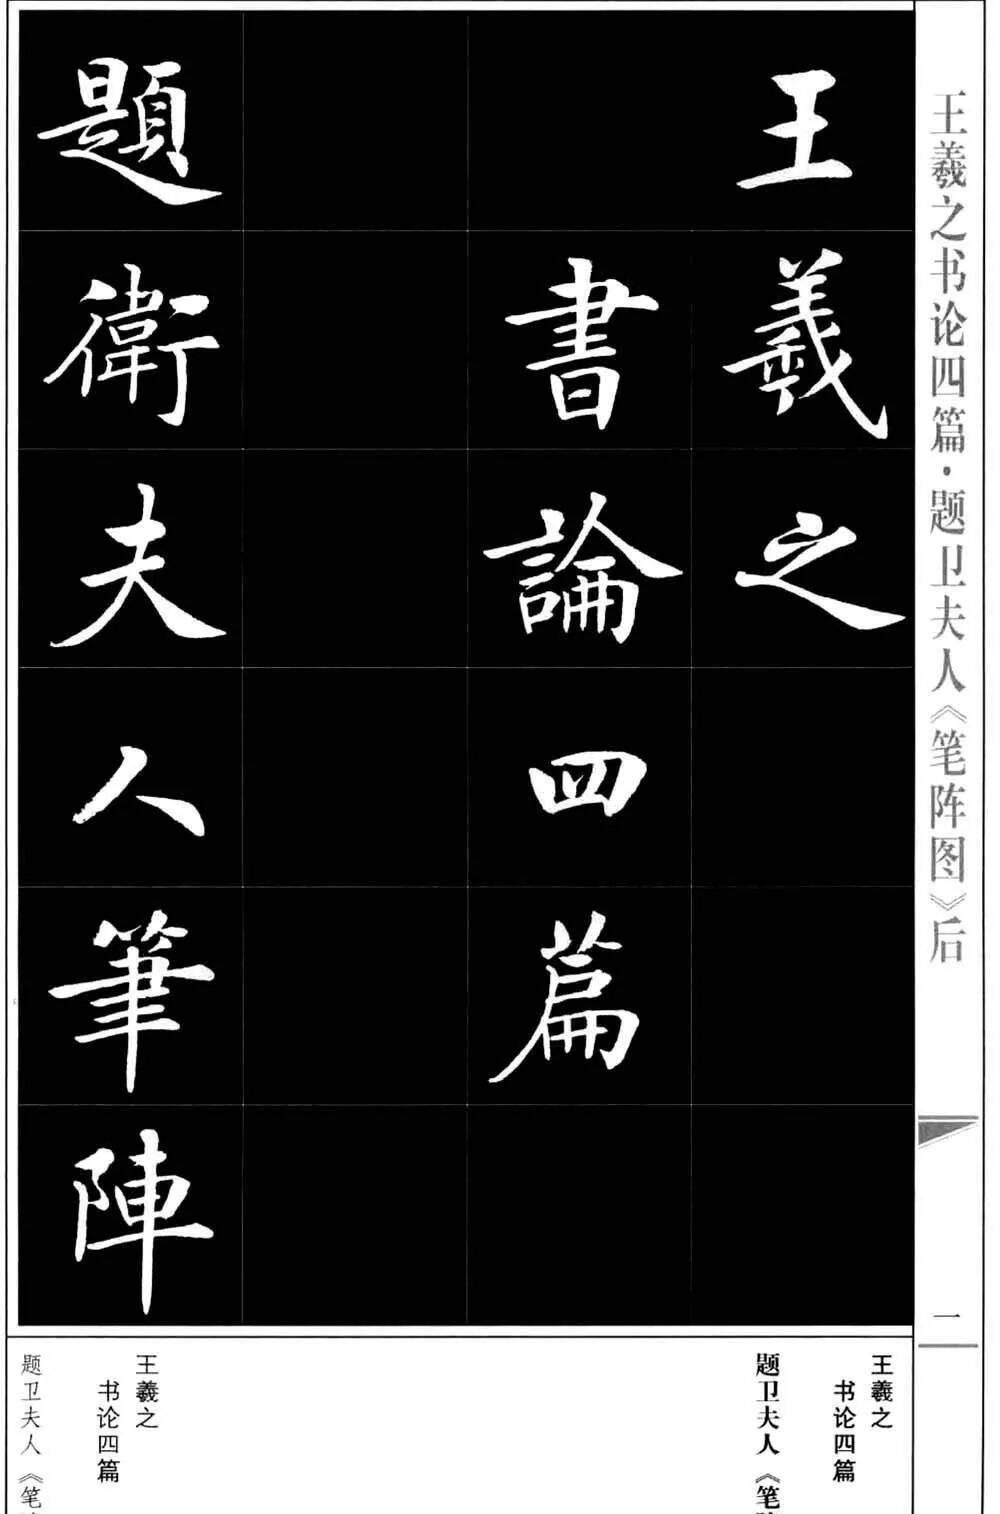 王羲之书论四篇·题卫夫人《笔阵图》后
一
王羲之
書論四篇
題衛夫人筆陣
王羲之
书论四篇
题卫夫人《笔
王羲之
书论四篇
题卫夫人《笔